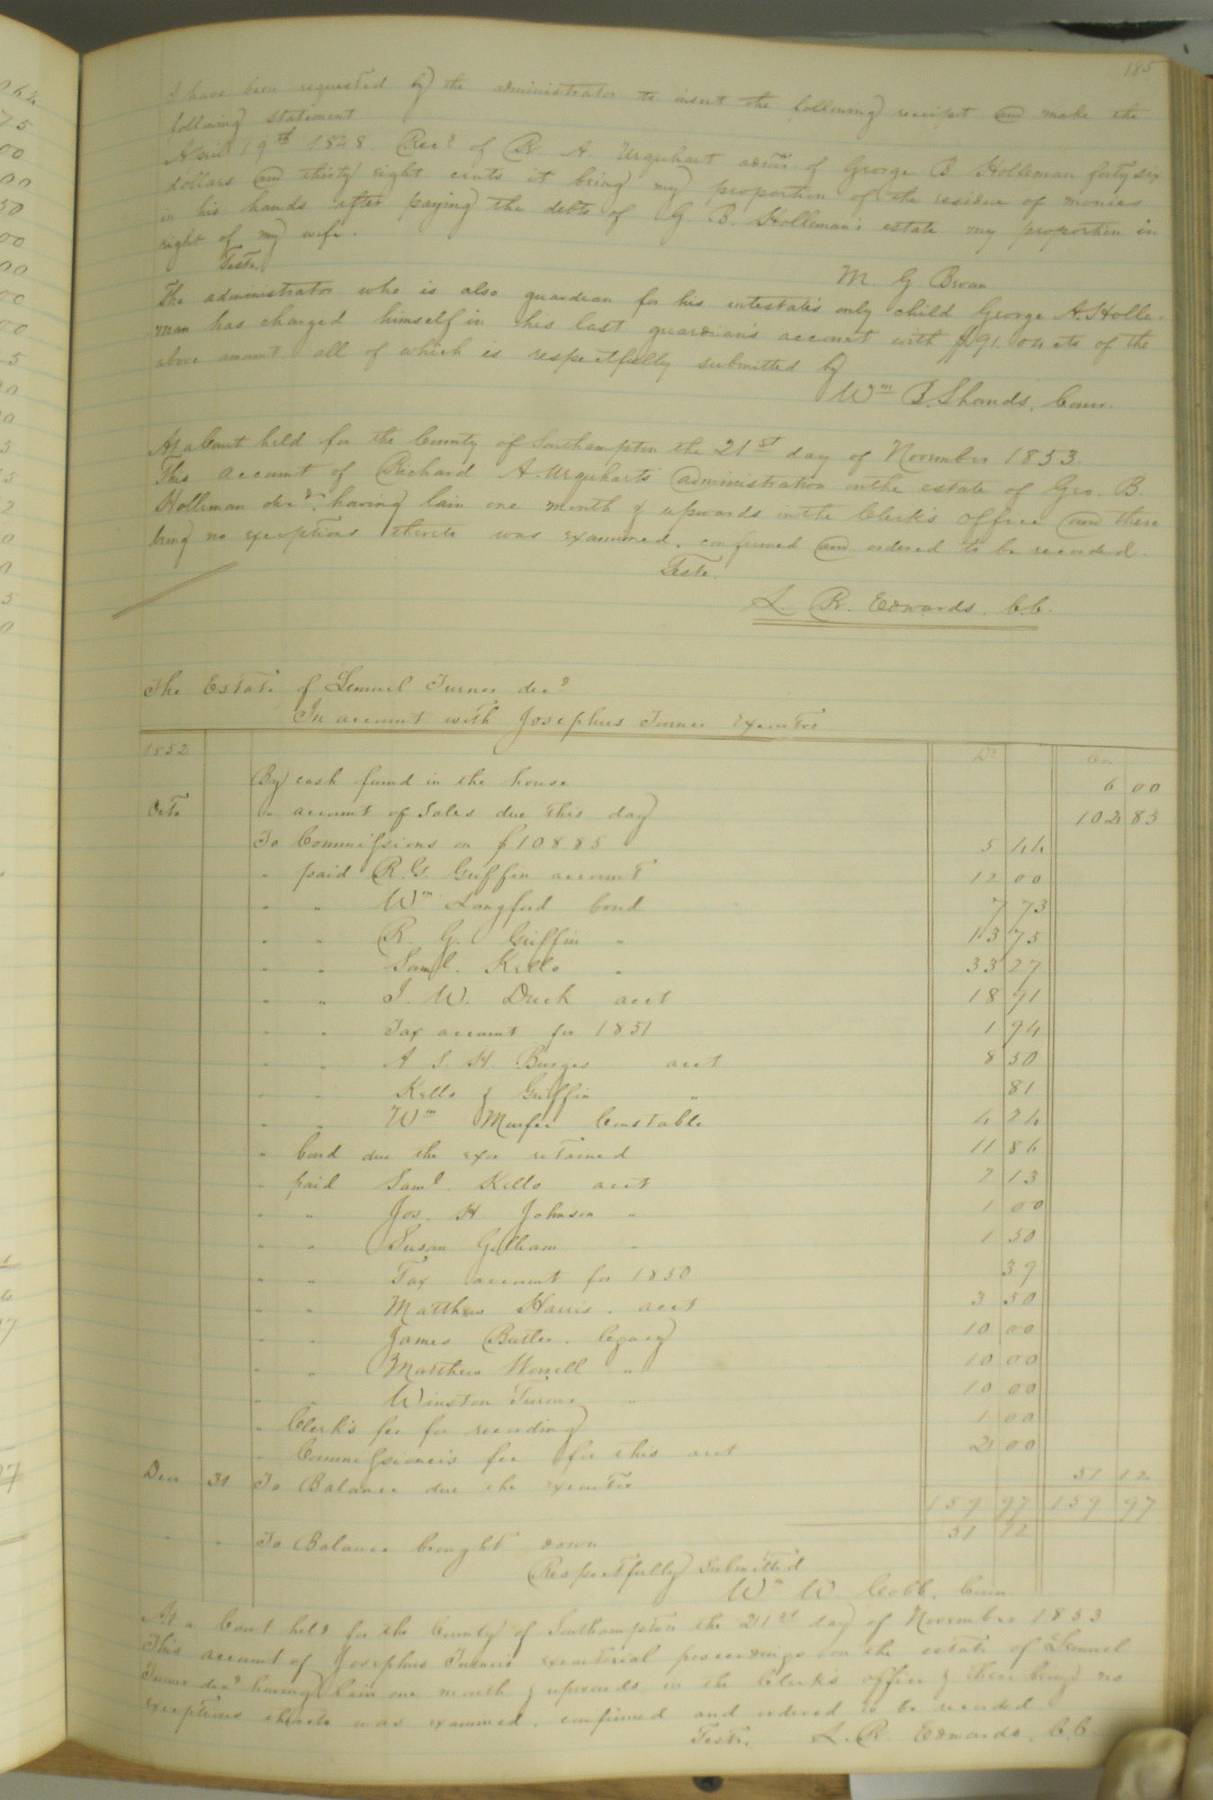 185
I have been requested by the administrator to insert the following receipt and make the
following statement
April 19th 1828. Recd of R. A. Urquhart admr of George B Holleman forty six
dollars and thirty eight cents it being my proportion of the residue of monies
in his hands after paying the debts of G. B. Holleman's estate my proportion in
right of my wife.
Teste. M. G.
The administrator who is also guardian for his intestate's only child George A. Holle-
man has charged himself in his last guardian's account with $91. cts of the
above amount all of which is respectfully submitted by
Wm B. Shands, Comr.
At a Court held for the County of Southampton the 21st day of November 1853.
This account of Richard A. Urquhart's administration on the estate of Geo. B.
Holleman decd, having lain one month & upwards in the Clerk's office and there
being no exceptions thereto was examined, confirmed and ordered to be recorded.
Teste.
L. R. Edwards. C.C.
The Estate of Lemuel Turner decd
In account with Josephus Turner Executor
1852 Dr Cr
By cash found in the house 6 00
Octo " account of Sales due this day 102 85
To Commissions on $108 85 5 44
" paid R. G. Griffin account 12 00
" " Wm Langford bond 7 73
" " R. G. Griffin " 13 75
" " Saml. Kello " 33 27
" " J. W. Duck acct 18 91
" " Tax account for 1851 1 94
" " A. S. H. Burges acct 8 50
" " Kello & Griffin " 81
" " Wm Murfee Constable 4 24
" bond due the exor retained 11 86
" paid Saml. Kello acct 7 13
" " Jos. H Johnson " 1 00
" " Susan Gilliam " 1 50
" " Tax account for 1850 39
" " Matthew Harris. acct 3 50
" " James Butler. legacy 10 00
" " Matthew Worrell " 10 00
" " Winston Turner " 10 00
" Clerk's fee for recording 1 00
" Commissioner's fee for this acct 2 00
Decr 31 To Balance due the Executor 51 12
159 97 159 97
" " To Balance brought down 51 12
Respectfully Submitted
Wm W Cobb. Comr
At a Court held for the County of Southampton the 21st day of November 1853
This account of Josephus Turner's executorial proceedings on the estate of Lemuel
Turner decd having lain one month & upwards in the Clerk's office & there being no
exceptions thereto was examined, confirmed and ordered to be recorded
Teste. L. R. Edwards, C.C.